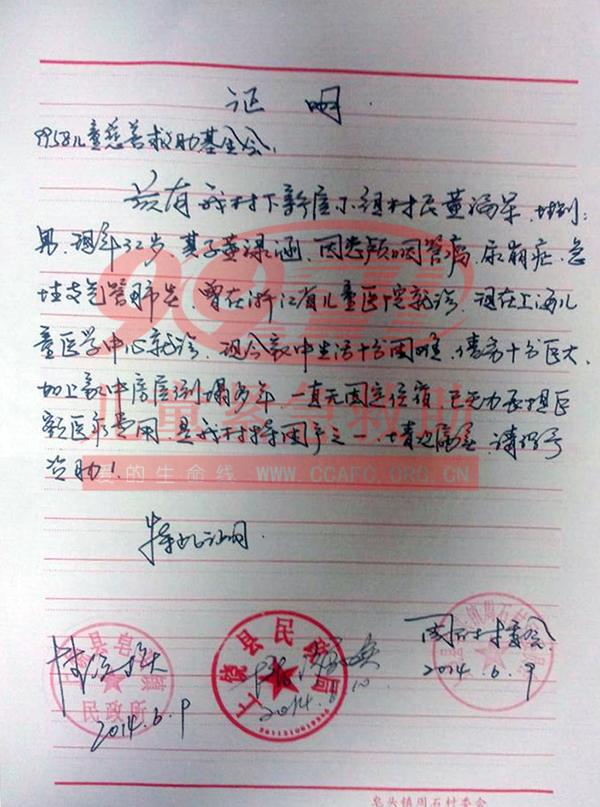 证 明
9958儿童慈善救助基金会:
兹有我村下新屋小组村民董 性别:
男,现年32岁,其子董 涵,因患颅咽管瘤、尿崩症、急
性支气管肺炎,曾在浙江省儿童医院就诊,现在上海儿
童医学中心就诊,现今家中生活十分困难,债务十分巨大,
加上家中房屋倒塌多年,一直无固定住宿,已无力承担巨
额医疗费用,是我村特困户之一,情况属实,请给予
资助!
特此证明
9958
儿童紧急救助
爱的生命线 WWW.CCAFC.ORG.CN
上饶县皂头镇
民政所
2014.6.9
上饶县民政局
2014.6.10
周石村委会
2014.6.9
皂头镇周石村委会